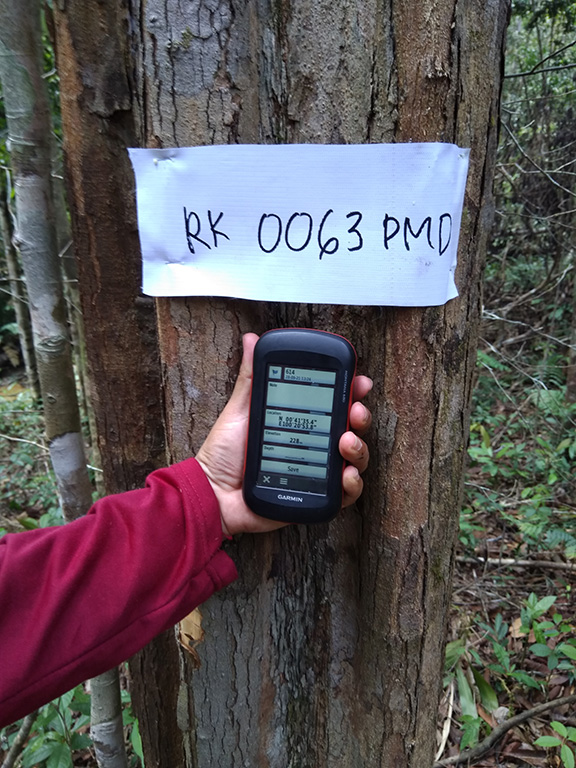 RK 0063 PMD
614
Note
Location
N 00°41'35.4"
E100°20'53.8"
Elevation
228m
Depth
Save
GARMIN